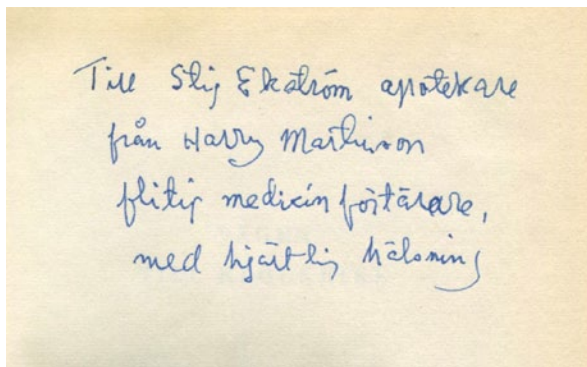 Till Stig Ekström apotekare
från Harry Martinson
flitig medicinförtärare,
med hjärtlig hälsning